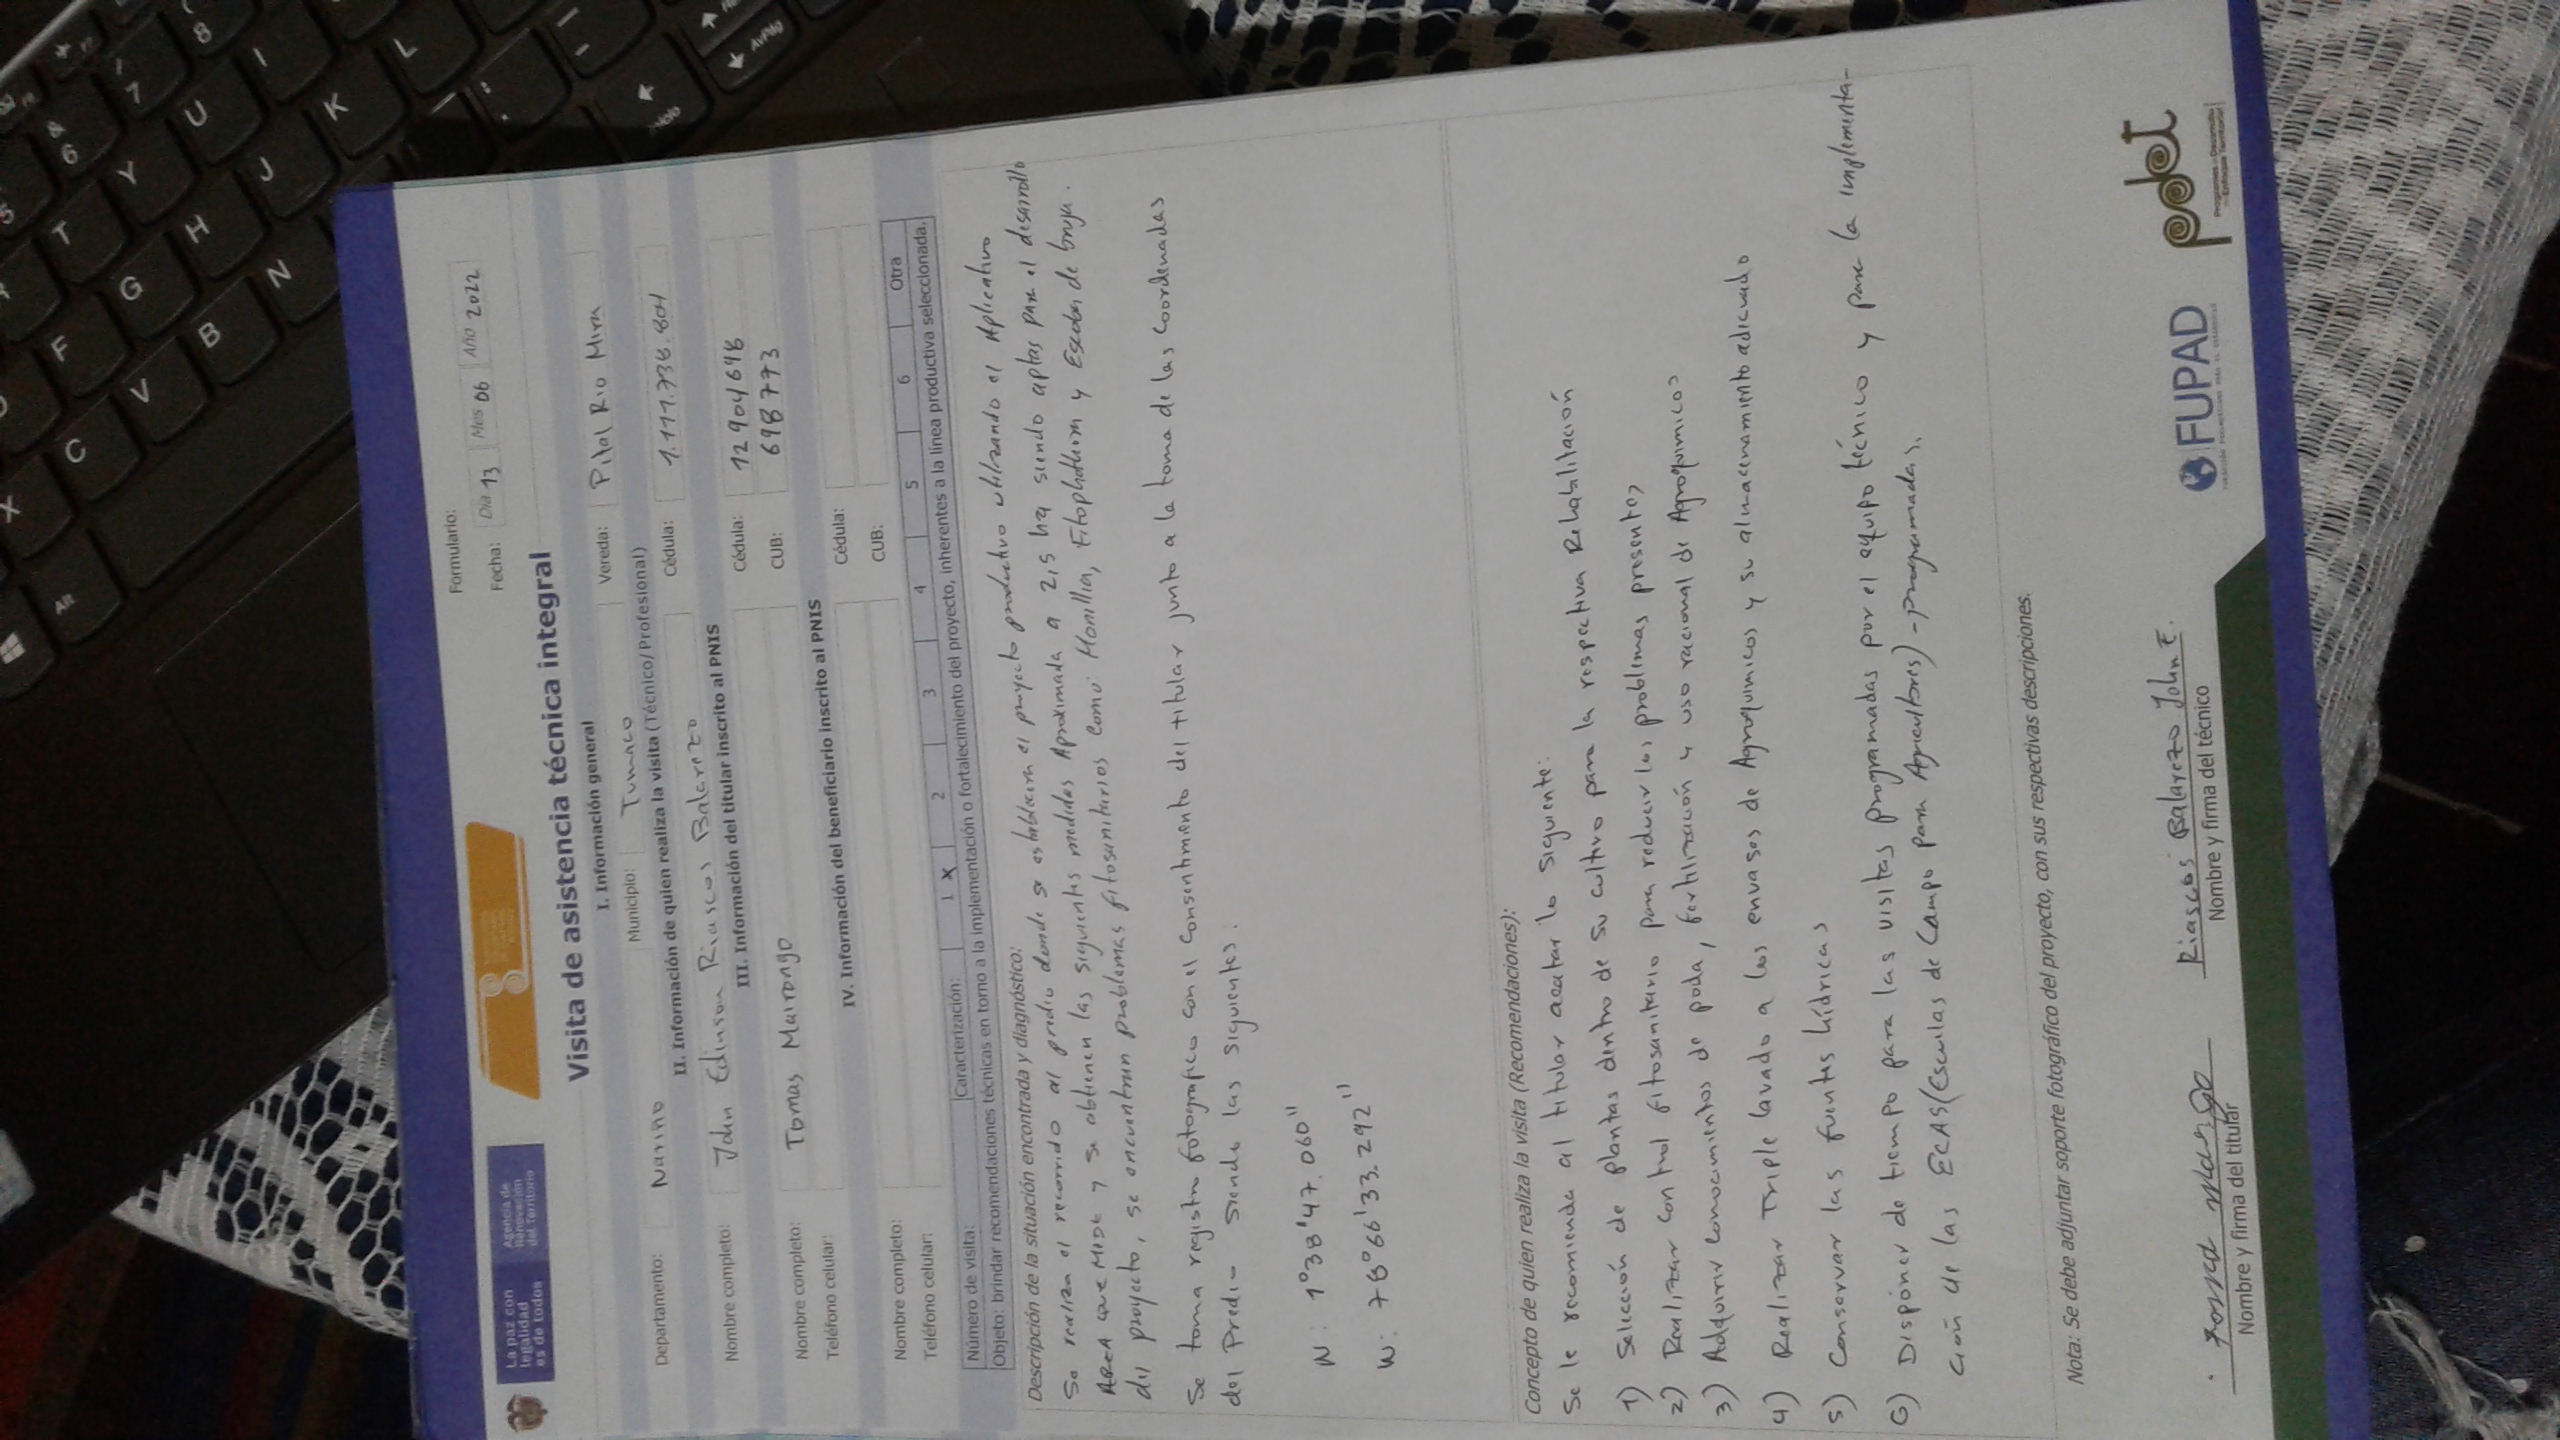 La paz con
legalidad
es de todos
Agencia de
Renovación
del Territorio
Formulario:
Fecha: Día 13 Mes 06 Año 2022
Visita de asistencia técnica integral
I. Información general
Departamento: Nariño Municipio: Tumaco Vereda: Pital Rio Mira
II. Información de quien realiza la visita (Técnico/Profesional)
Nombre completo: John Edinson Riascos Balarezo Cédula: 1.111.738.804
III. Información del titular inscrito al PNIS
Nombre completo: Tomas Mairongo Cédula: 12904698
Teléfono celular: CUB: 698773
IV. Información del beneficiario inscrito al PNIS
Nombre completo: Cédula:
Teléfono celular: CUB:
Número de visita: Caracterización: 1 X 2 3 4 5 6 Otra
Objeto: brindar recomendaciones técnicas en torno a la implementación o fortalecimiento del proyecto, inherentes a la línea productiva seleccionada.
Descripción de la situación encontrada y diagnóstico:
Se realiza el recorrido al predio donde se establecera el proyecto productivo utilizando el Aplicativo
AREA que MIDE y se obtienen las siguientes medidas Aproximada a 2,5 ha siendo aptas para el desarrollo
del proyecto, se encuentran problemas fitosanitarios como: Monilia, Fitophthora y Escoba de bruja.
Se toma registro fotografico con el consentimiento del titular junto a la toma de las Coordenadas
del Predio siendo las siguientes:
N: 1°38'47.060"
W: 78°66'33.292"
Concepto de quien realiza la visita (Recomendaciones):
Se le recomienda al titular acatar lo siguiente:
1) Selección de plantas dentro de su cultivo para la respectiva Rehabilitación
2) Realizar control fitosanitario para reducir los problemas presentes
3) Adquirir conocimientos de poda, fertilización y uso racional de Agroquimicos
4) Realizar Triple lavado a los envases de Agroquimicos y su almacenamiento adecuado
5) Conservar las fuentes hídricas
6) Disponer de tiempo para las visitas programadas por el equipo técnico y para la implementa-
ción de las ECAS (Esculas de Campo para Agricultores) - programadas.
Nota: Se debe adjuntar soporte fotográfico del proyecto, con sus respectivas descripciones.
Riascos Balarezo John E.
Nombre y firma del titular Nombre y firma del técnico
FUPAD
pdet
Programas de Desarrollo
con Enfoque Territorial